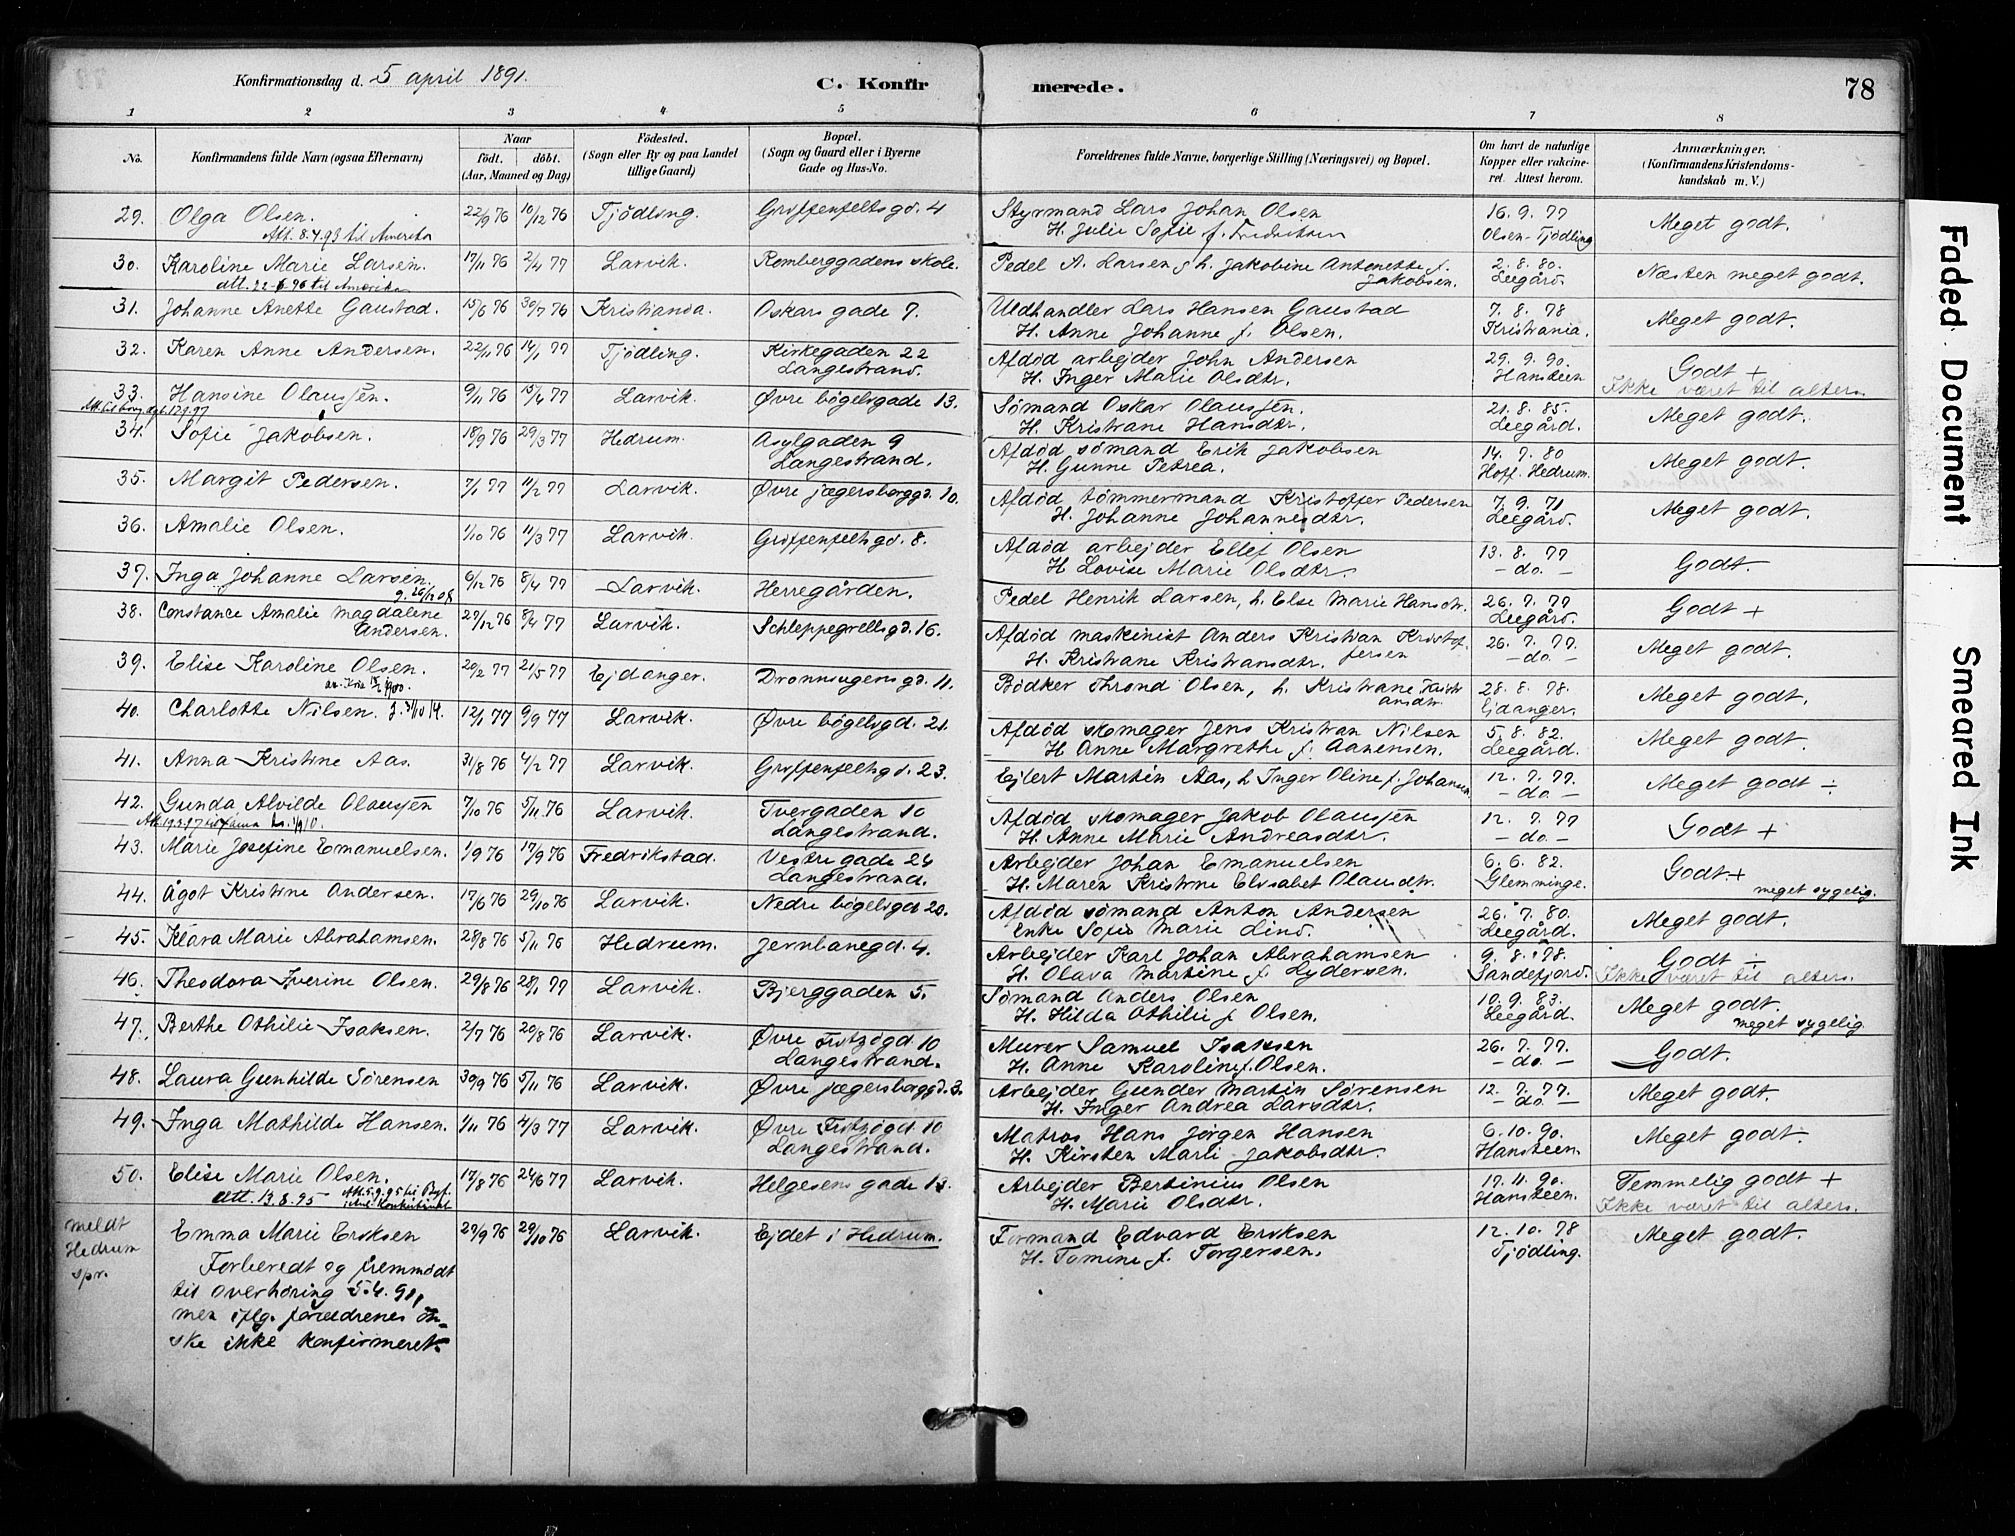 Konfirmationsdag d. 5 april 1891.
C. Konfirmerede.
78
1 2 3 4 5 6 7 8
No.
Konfirmandens fulde Navn (ogsaa Efternavn)
Naar
födt. döbt.
(Aar, Maaned og Dag)
Födested.
(Sogn eller By og paa Landet
tillige Gaard)
Bopæl.
(Sogn og Gaard eller i Byerne
Gade og Hus-No.
Forældrenes fulde Navne, borgerlige Stilling (Næringsvei) og Bopæl.
Om havt de naturlige
Kopper eller vakcine-
ret. Attest herom.
Anmærkninger.
(Konfirmandens Kristendoms-
kundskab m. V.)
29. Olga Olsen. 22/9 76 10/12 76 Tjödling. Griffenfeldtsgd. 4 Styrmand Lars Johan Olsen 16. 9. 77 Meget godt.
Att. 8.4.93 til Amerika H. Julie Sofie f. Fredriksen Olsen-Tjödling
30. Karoline Marie Larsen. 17/11 76 2/4 77 Larvik. Romberggadens skole. Pedel A. Larsen, h. Jakobine Antonette f. 2. 8. 80. Næsten meget godt.
att. 22-6 96 til Amerika Jakobsen. Leegård.
31. Johanne Anette Gaustad. 15/6 76 30/7 76 Kristiania. Oskars gade 7. Uldhandler Lars Hansen Gaustad 7. 8. 78 Meget godt.
H. Anne Johanne f. Olsen. Kristiania.
32. Karen Anne Andersen. 22/11 76 14/1 77 Tjödling. Kirkegaden 22 Afdöd arbejder John Andersen 29. 9. 90. Godt +
Langestrand. H. Inger Marie Olsdtr. Hansteen Ikke været til alters.
33. Hansine Olaussen. 9/11 76 15/4 77 Larvik. Øvre bögeligade 13. Sömand Oskar Olaussen. 21. 8. 85. Meget godt.
H. Kristiane Hansdtr. Leegård.
34. Sofie Jakobsen. 18/9 76 29/3 77 Hedrum. Asylgaden 9 Afdöd sömand Erik Jakobsen 14. 7. 80 Meget godt.
Langestrand. H. Gunne Petrea. Hoff. Hedrum.
35. Margit Pedersen. 7/1 77 11/2 77 Larvik. Øvre jægersborggd. 10. Afdöd tömmermand Kristoffer Pedersen 7. 9. 71 Meget godt.
H. Johanne Johannesdtr. Leegård.
36. Amalie Olsen. 1/10 76 11/3 77 Larvik. Griffenfeltsgd. 8. Afdöd arbejder Ellef Olsen 13. 8. 77 Godt.
H. Lovise Marie Olsdtr. - do. -
37. Inga Johanne Larsen. 6/12 76 8/4 77 Larvik. Herregården. Pedel Henrik Larsen, h. Else Marie Hansdtr. 26. 7. 77 Godt +
Leegård.
38. Constance Amalie Magdalene 29/12 76 8/4 77 Larvik. Schleppegrellsgd. 16. Afdöd maskinist Anders Kristian Kristof- 26. 7. 77. Meget godt.
Andersen. H. Kristiane Kristiansdtr. fersen - do -
39. Elise Karoline Olsen. 20/2 77 21/5 77 Ejdanger. Dronningensgd. 11. Bödker Thrond Olsen, h. Kristiane 28. 8. 78. Meget godt.
Ejdanger.
40. Charlotte Nilsen. 12/1 77 9/9 77 Larvik. Øvre bögeligd. 21. Afdöd skomager Jens Kristian Nilsen 5. 8. 82. Meget godt.
H. Anne Margrethe f. Aanensen. Leegård.
41. Anna Kristine Aas. 31/8 76 4/2 77 Larvik. Griffenfeltsgd. 23. Ejlert Martin Aas, h. Inger Oline f. Johansen. 12. 7. 77. Meget godt ÷
- do. -
42. Gunda Alvilde Olaussen 7/10 76 5/11 76 Larvik. Tvergaden 10 Afdöd skomager Jakob Olaussen 12. 7. 77 Godt +
Langestrand. H. Anne Marie Andreasdtr. - do. -
43. Marie Josefine Emanuelsen. 1/9 76 17/9 76 Fredrikstad. Vestre gade 24 Arbejder Johan Emanuelsen 6. 6. 82. Godt +
Langestrand. H. Maren Kristine Elisabet Olausdtr. Glemminge. meget sygelig.
44. Ågot Kristine Andersen. 17/6 76 29/10 76 Larvik. Nedre bögeligd 20. Afdöd sömand Anton Andersen 26. 7. 80. Meget godt.
Enke Sofie Marie Lind. Leegård.
45. Klara Marie Abrahamsen. 28/8 76 5/11 76 Hedrum. Jernbanegd. 4. Arbejder Karl Johan Abrahamsen 9. 8. 78. Godt ÷
H. Olava Martine f. Lydersen. Sandefjord. Ikke været til alters.
46. Theodora Iverine Olsen. 29/8 76 28/1 77 Larvik. Bjerggaden 5. Sömand Anders Olsen 10. 9. 83. Meget godt.
H. Hilda Othilie f. Olsen. Leegård. meget sygelig.
47. Berthe Othilie Isaksen. 2/7 76 20/8 76 Larvik. Øvre Fritzögd. 10 Murer Samuel Isaksen 26. 7. 77. Godt.
Langestrand. H. Anne Karoline f. Olsen. - do. -
48. Laura Gunhilde Sörensen 30/9 76 5/11 76 Larvik. Øvre jægersborggd. 3. Arbejder Gunder Martin Sørensen 12. 7. 77. Meget godt.
H. Inger Andrea Larsdtr. - do. -
49. Inga Mathilde Hansen. 1/11 76 4/3 77 Larvik. Øvre Fritzögd. 10 Matros Hans Jörgen Hansen 6. 10. 90. Meget godt.
Langestrand. H. Kirsten Marie Jakobsdtr. Hansteen.
50. Elise Marie Olsen. 17/8 76 24/6 77 Larvik. Helgesens gade 13. Arbejder Bertinius Olsen 17. 4. 90. Temmelig godt +
att. 13.8.95 H. Marie Olsdtr. Hansteen. Ikke været til alters.
meldt Emma Marie Eriksen 29/9 76 29/10 76 Larvik. Ejdet i Hedrum. Formand Edvard Eriksen 12. 10. 78 Meget godt.
Hedrum Forberedt og fremmödt H. Tomine f. Torgersen. Tjödling.
spr. til overhöring 5.4.91,
men iflg. forældrenes ön-
ske ikke konfirmeret.
Faded Document
Smeared Ink